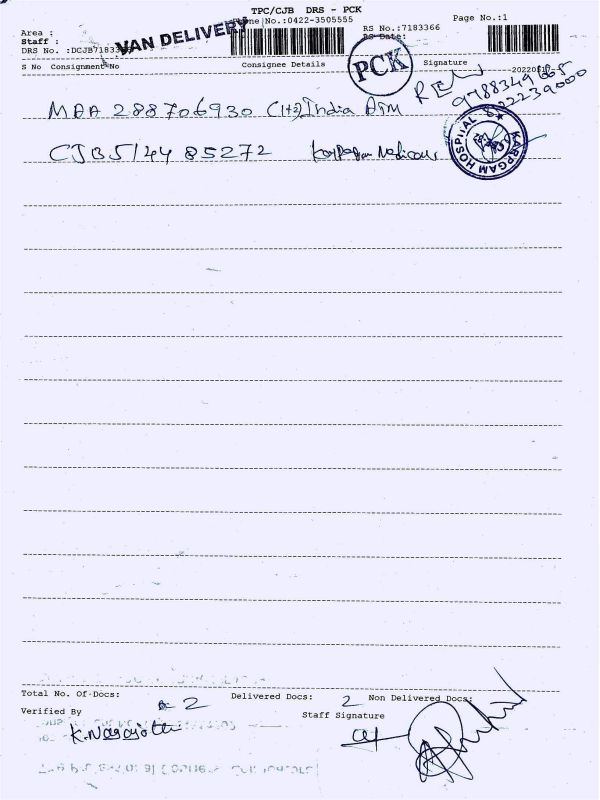 TPC/CJB DRS - PCK
Phone No.:0422-3505555
Page No.:1
Area :
RS No.:7183366
Staff :
RS Date:
DRS No. :DCJB7183366
VAN DELIVERY
PCK
S No Consignment No
Consignee Details
Signature
9788349665
0422239000
MAA 288706930 (1+2) India
CJB5144 85272 Karpagam Medicons
KARPGAM HOSPITAL
Total No. Of Docs: 2
Delivered Docs: 2
Non Delivered Docs:
Verified By
Staff Signature
K.Nagajothi